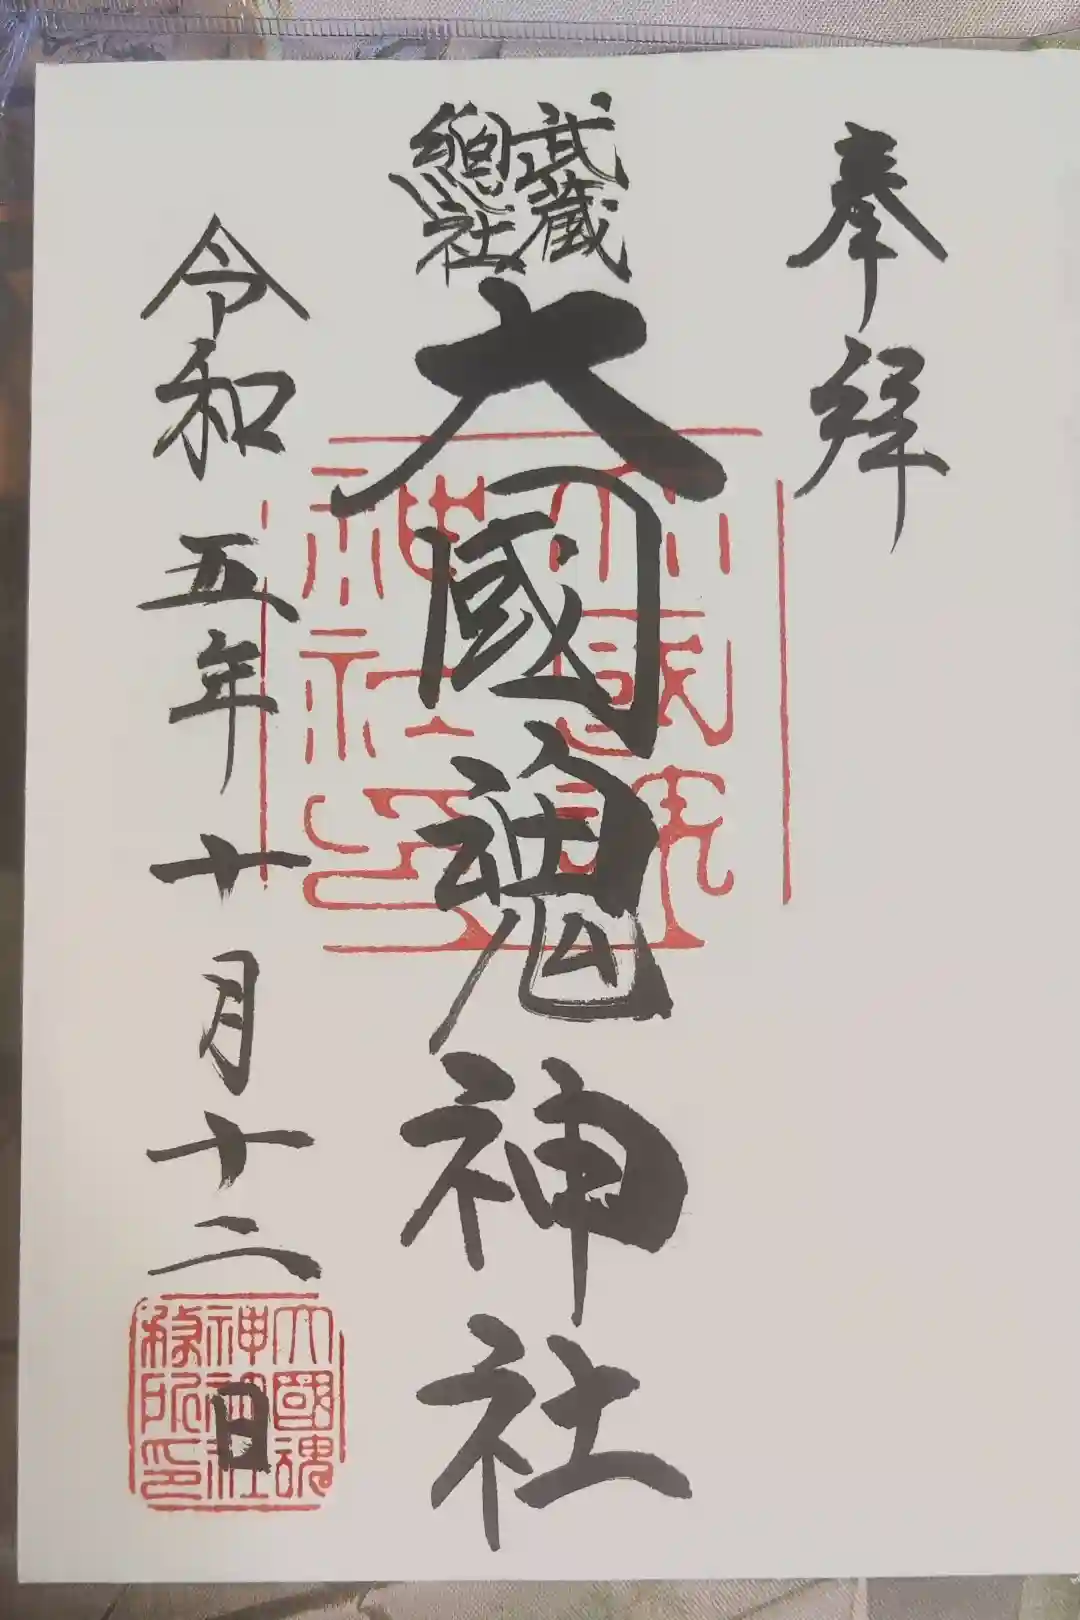 奉拝
武蔵
總社
大國魂神社
令和五年十月十二日
大國魂
神社印
大國魂
神社社
務所印